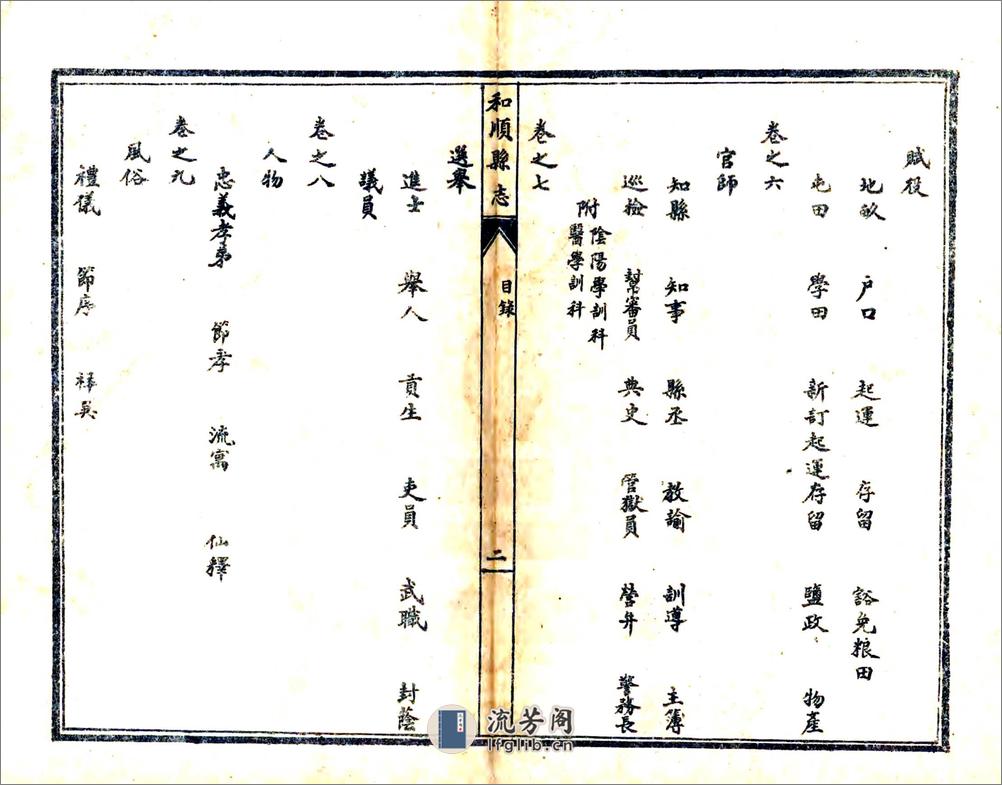 賦役
地畝 户口 起運 存留 豁免粮田
屯田 學田 新訂起運存留 鹽政 物產
卷之六
官師
知縣 知事 縣丞 教諭 訓導 主簿
巡檢 幇審員 典史 管獄員 營弁 警務長
附 陰陽學訓科
醫學訓科
卷之七
和順縣志
目錄
二
選舉
進士 舉人 貢生 吏員 武職 封蔭
議員
卷之八
人物
忠義孝弟 節孝 流寓 仙釋
卷之九
風俗
禮儀 節序 祥異
流芳阁
lfglib.cn